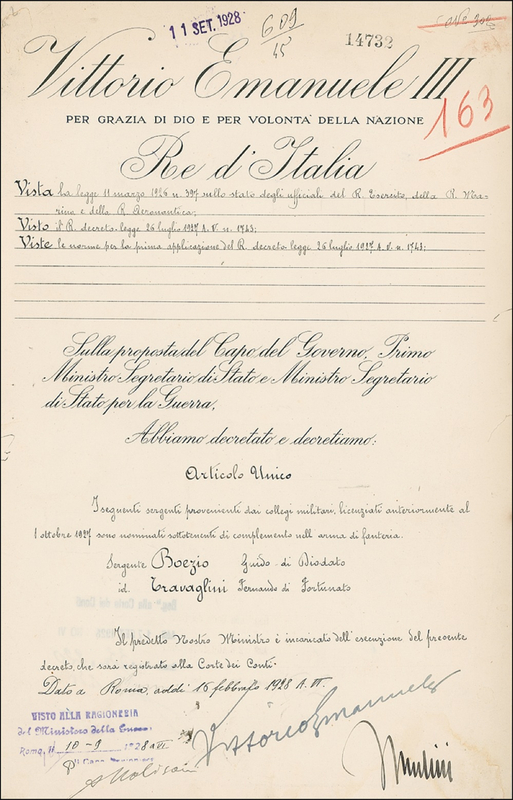 11 SET. 1928
609
45
14732
163
Vittorio Emanuele III
PER GRAZIA DI DIO E PER VOLONTA' DELLA NAZIONE
Re d'Italia
Vista la legge 11 marzo 1926 n. 397 sullo stato degli ufficiali del R. Esercito, della R. Ma-
rina e della R. Aeronautica;
Visto il R. decreto-legge 26 luglio 1927 A.V. n. 1743;
Viste le norme per la prima applicazione del R. decreto legge 26 luglio 1927 A.V. n. 1743;
Sulla proposta del Capo del Governo, Primo
Ministro Segretario di Stato e Ministro Segretario
di Stato per la Guerra,
Abbiamo decretato e decretiamo:
Articolo Unico
I seguenti sergenti provenienti dai collegi militari, licenziati anteriormente al
1 ottobre 1927 sono nominati sottotenenti di complemento nell'arma di fanteria.
Sergente Boezio Guido di Diodato
id. Travaglini Fernando di Fortunato
Il predetto Nostro Ministro è incaricato dell'esecuzione del presente
decreto, che sarà registrato alla Corte dei Conti.
Dato a Roma, addì 16 febbraio 1928 A. VI.
VISTO ALLA RAGIONERIA
del Ministero della Guerra
Roma, li 10-9 1928 A VI
Vittorio Emanuele
Mussolini